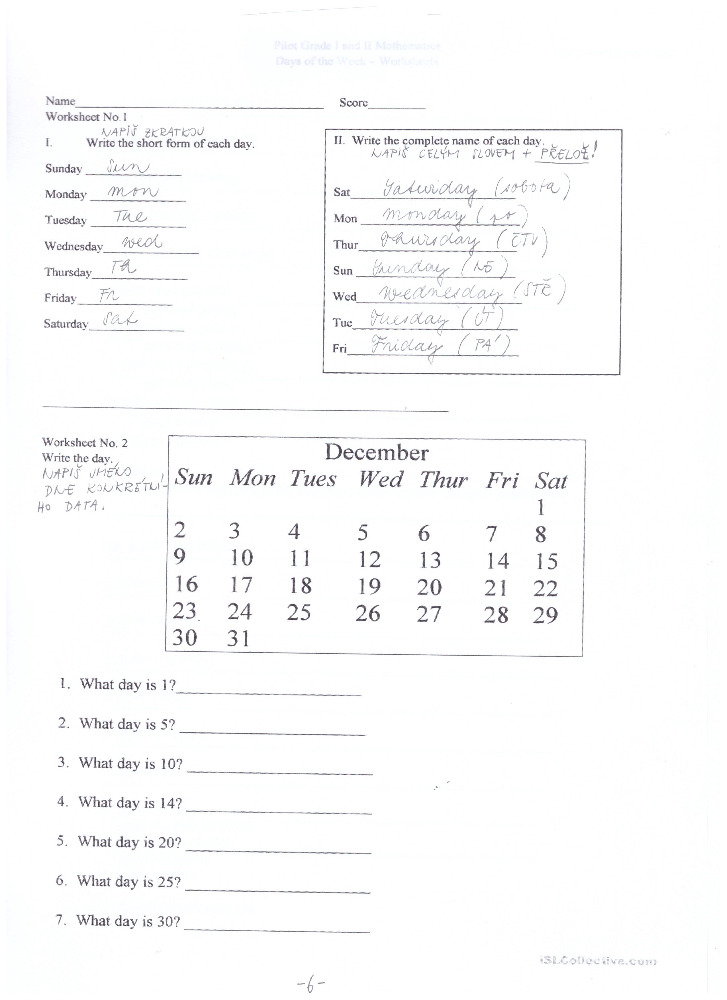 Pilot Grade I and II Mathematics
Days of the Week – Worksheets
Name____________ Score________
Worksheet No.1
NAPIŠ ZKRATKOU
I. Write the short form of each day.
Sunday Sun
Monday mon
Tuesday Tue
Wednesday wed
Thursday Th
Friday Fr
Saturday Sat
II. Write the complete name of each day.
NAPIŠ CELÝM SLOVEM + PŘELOŽ!
Sat Saturday (sobota)
Mon monday (po)
Thur thursday (ČTV)
Sun Sunday (NE)
Wed wednesday (STŘ)
Tue Tuesday (ÚT)
Fri Friday (PÁ)
Worksheet No. 2
Write the day.
NAPIŠ JMÉNO
DNE KONKRÉTNÍ-
HO DATA.
December
Sun Mon Tues Wed Thur Fri Sat
1
2 3 4 5 6 7 8
9 10 11 12 13 14 15
16 17 18 19 20 21 22
23 24 25 26 27 28 29
30 31
1. What day is 1?____________
2. What day is 5? ____________
3. What day is 10? ____________
4. What day is 14? ____________
5. What day is 20? ____________
6. What day is 25? ____________
7. What day is 30? ____________
iSLCollective.com
-6-